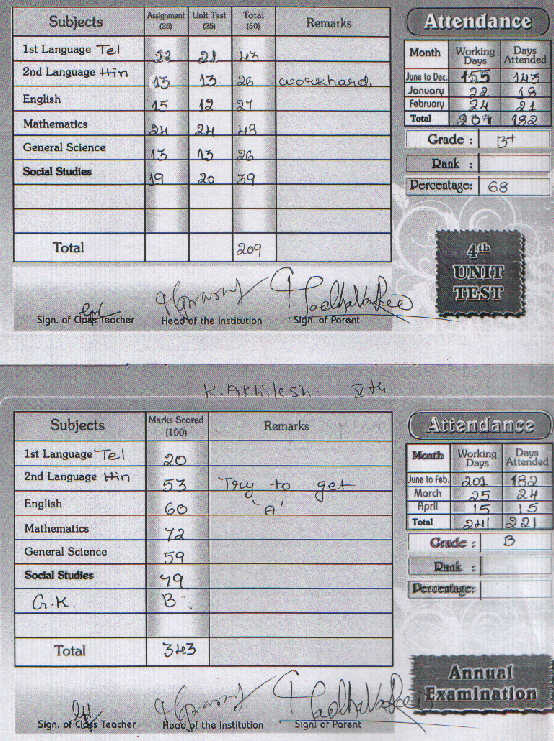 Subjects Assignment (25) Unit Test (25) Total (50) Remarks
1st Language Tel 22 21 43
2nd Language Hin 13 13 26 workhard.
English 15 12 27
Mathematics 24 24 48
General Science 13 13 26
Social Studies 19 20 39
Total 209
Attendance
Month Working Days Days Attended
June to Dec. 155 143
January 22 18
February 24 21
Total 201 182
Grade : B+
Rank :
Percentage: 68
4th
UNIT
TEST
Sign. of Class Teacher Head of the Institution Sign. of Parent
K. Akhilesh Vth
Subjects Marks Scored (100) Remarks
1st Language Tel 20
2nd Language Hin 53 Try to get
English 60 'A'
Mathematics 72
General Science 59
Social Studies 79
G.K B
Total 343
Attendance
Month Working Days Days Attended
June to Feb. 201 182
March 25 24
April 15 15
Total 241 221
Grade : B
Rank :
Percentage:
Annual
Examination
Sign. of Class Teacher Head of the Institution Sign. of Parent